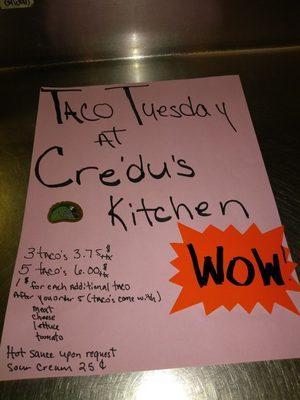 Taco Tuesday
AT
Cre'du's
Kitchen
WOW!
3 taco's 3.75 $ +tx
5 taco's 6.00 $ +tx
1 $ for each additional taco
After you order 5 (taco's come with)
meat
cheese
lettuce
tomato
Hot sauce upon request
sour cream 25 ¢